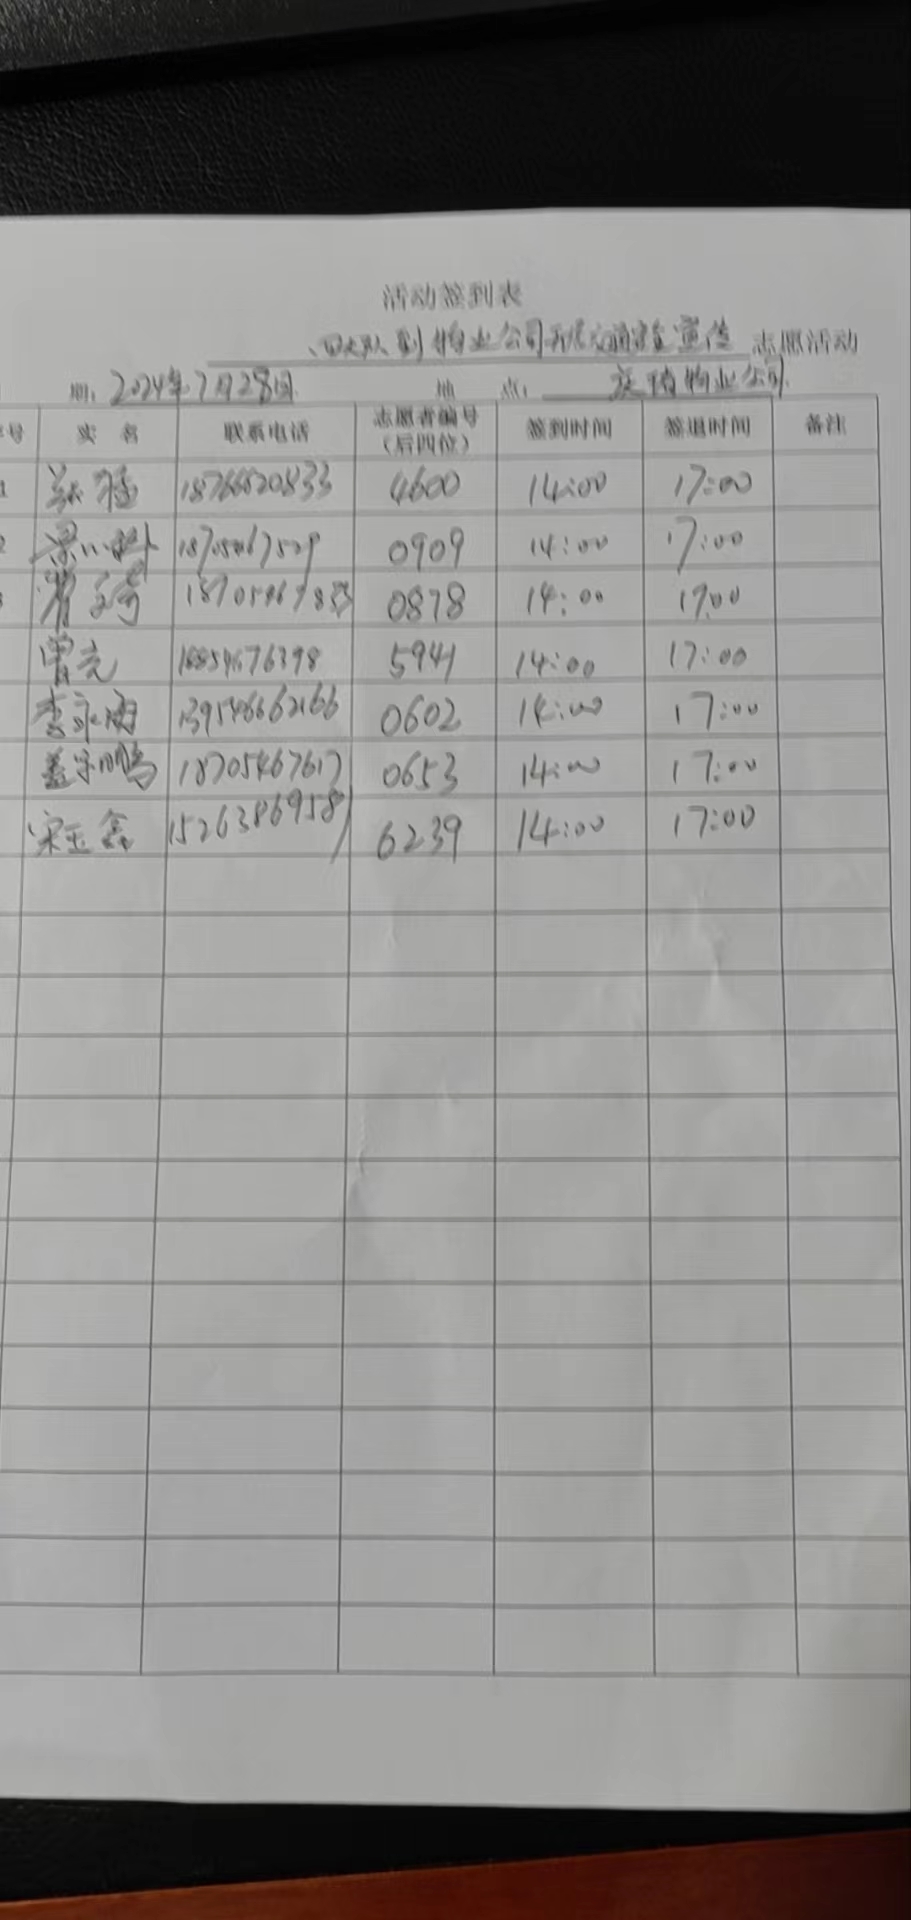 活动签到表
四大队到物业公司开展交通安全宣传 志愿活动
期: 2024年7月28日 地 点: 物业公司
号 实 名 联系电话 志愿者编号(后四位) 签到时间 签退时间 备注
1 18766820833 4600 14:00 17:00
2 18705467529 0909 14:00 17:00
3 0878 14:00 17:00
曾亮 18854676398 5941 14:00 17:00
李永雨 139546662166 0602 14:00 17:00
盖宗鹏 18705467617 0653 14:00 17:00
宋玉鑫 15263869581 6239 14:00 17:00